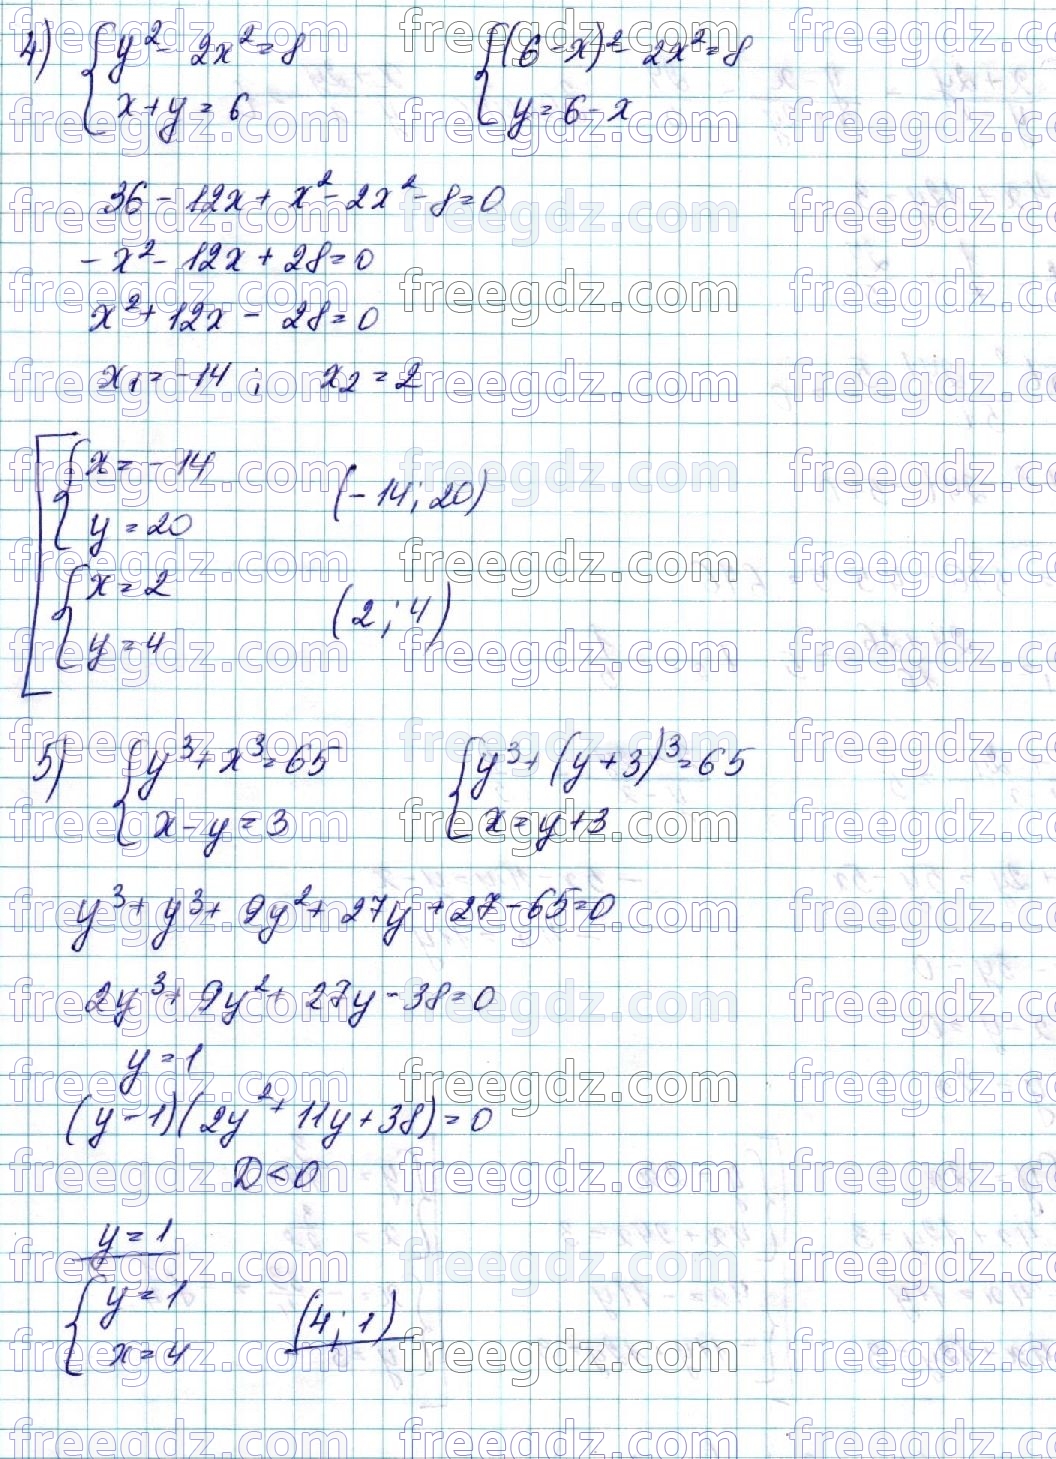 4) { y² - 2x² = 8    { (6-x)² - 2x² = 8
x + y = 6    y = 6 - x
36 - 12x + x² - 2x² - 8 = 0
-x² - 12x + 28 = 0
x² + 12x - 28 = 0
x₁ = -14 ;  x₂ = 2
[ { x = -14
y = 20    (-14; 20)
{ x = 2
y = 4    (2; 4)
5) { y³ + x³ = 65    { y³ + (y+3)³ = 65
x - y = 3    x = y + 3
y³ + y³ + 9y² + 27y + 27 - 65 = 0
2y³ + 9y² + 27y - 38 = 0
y = 1
(y - 1)(2y² + 11y + 38) = 0
D < 0
y = 1
{ y = 1
x = 4    (4; 1)
freegdz.com